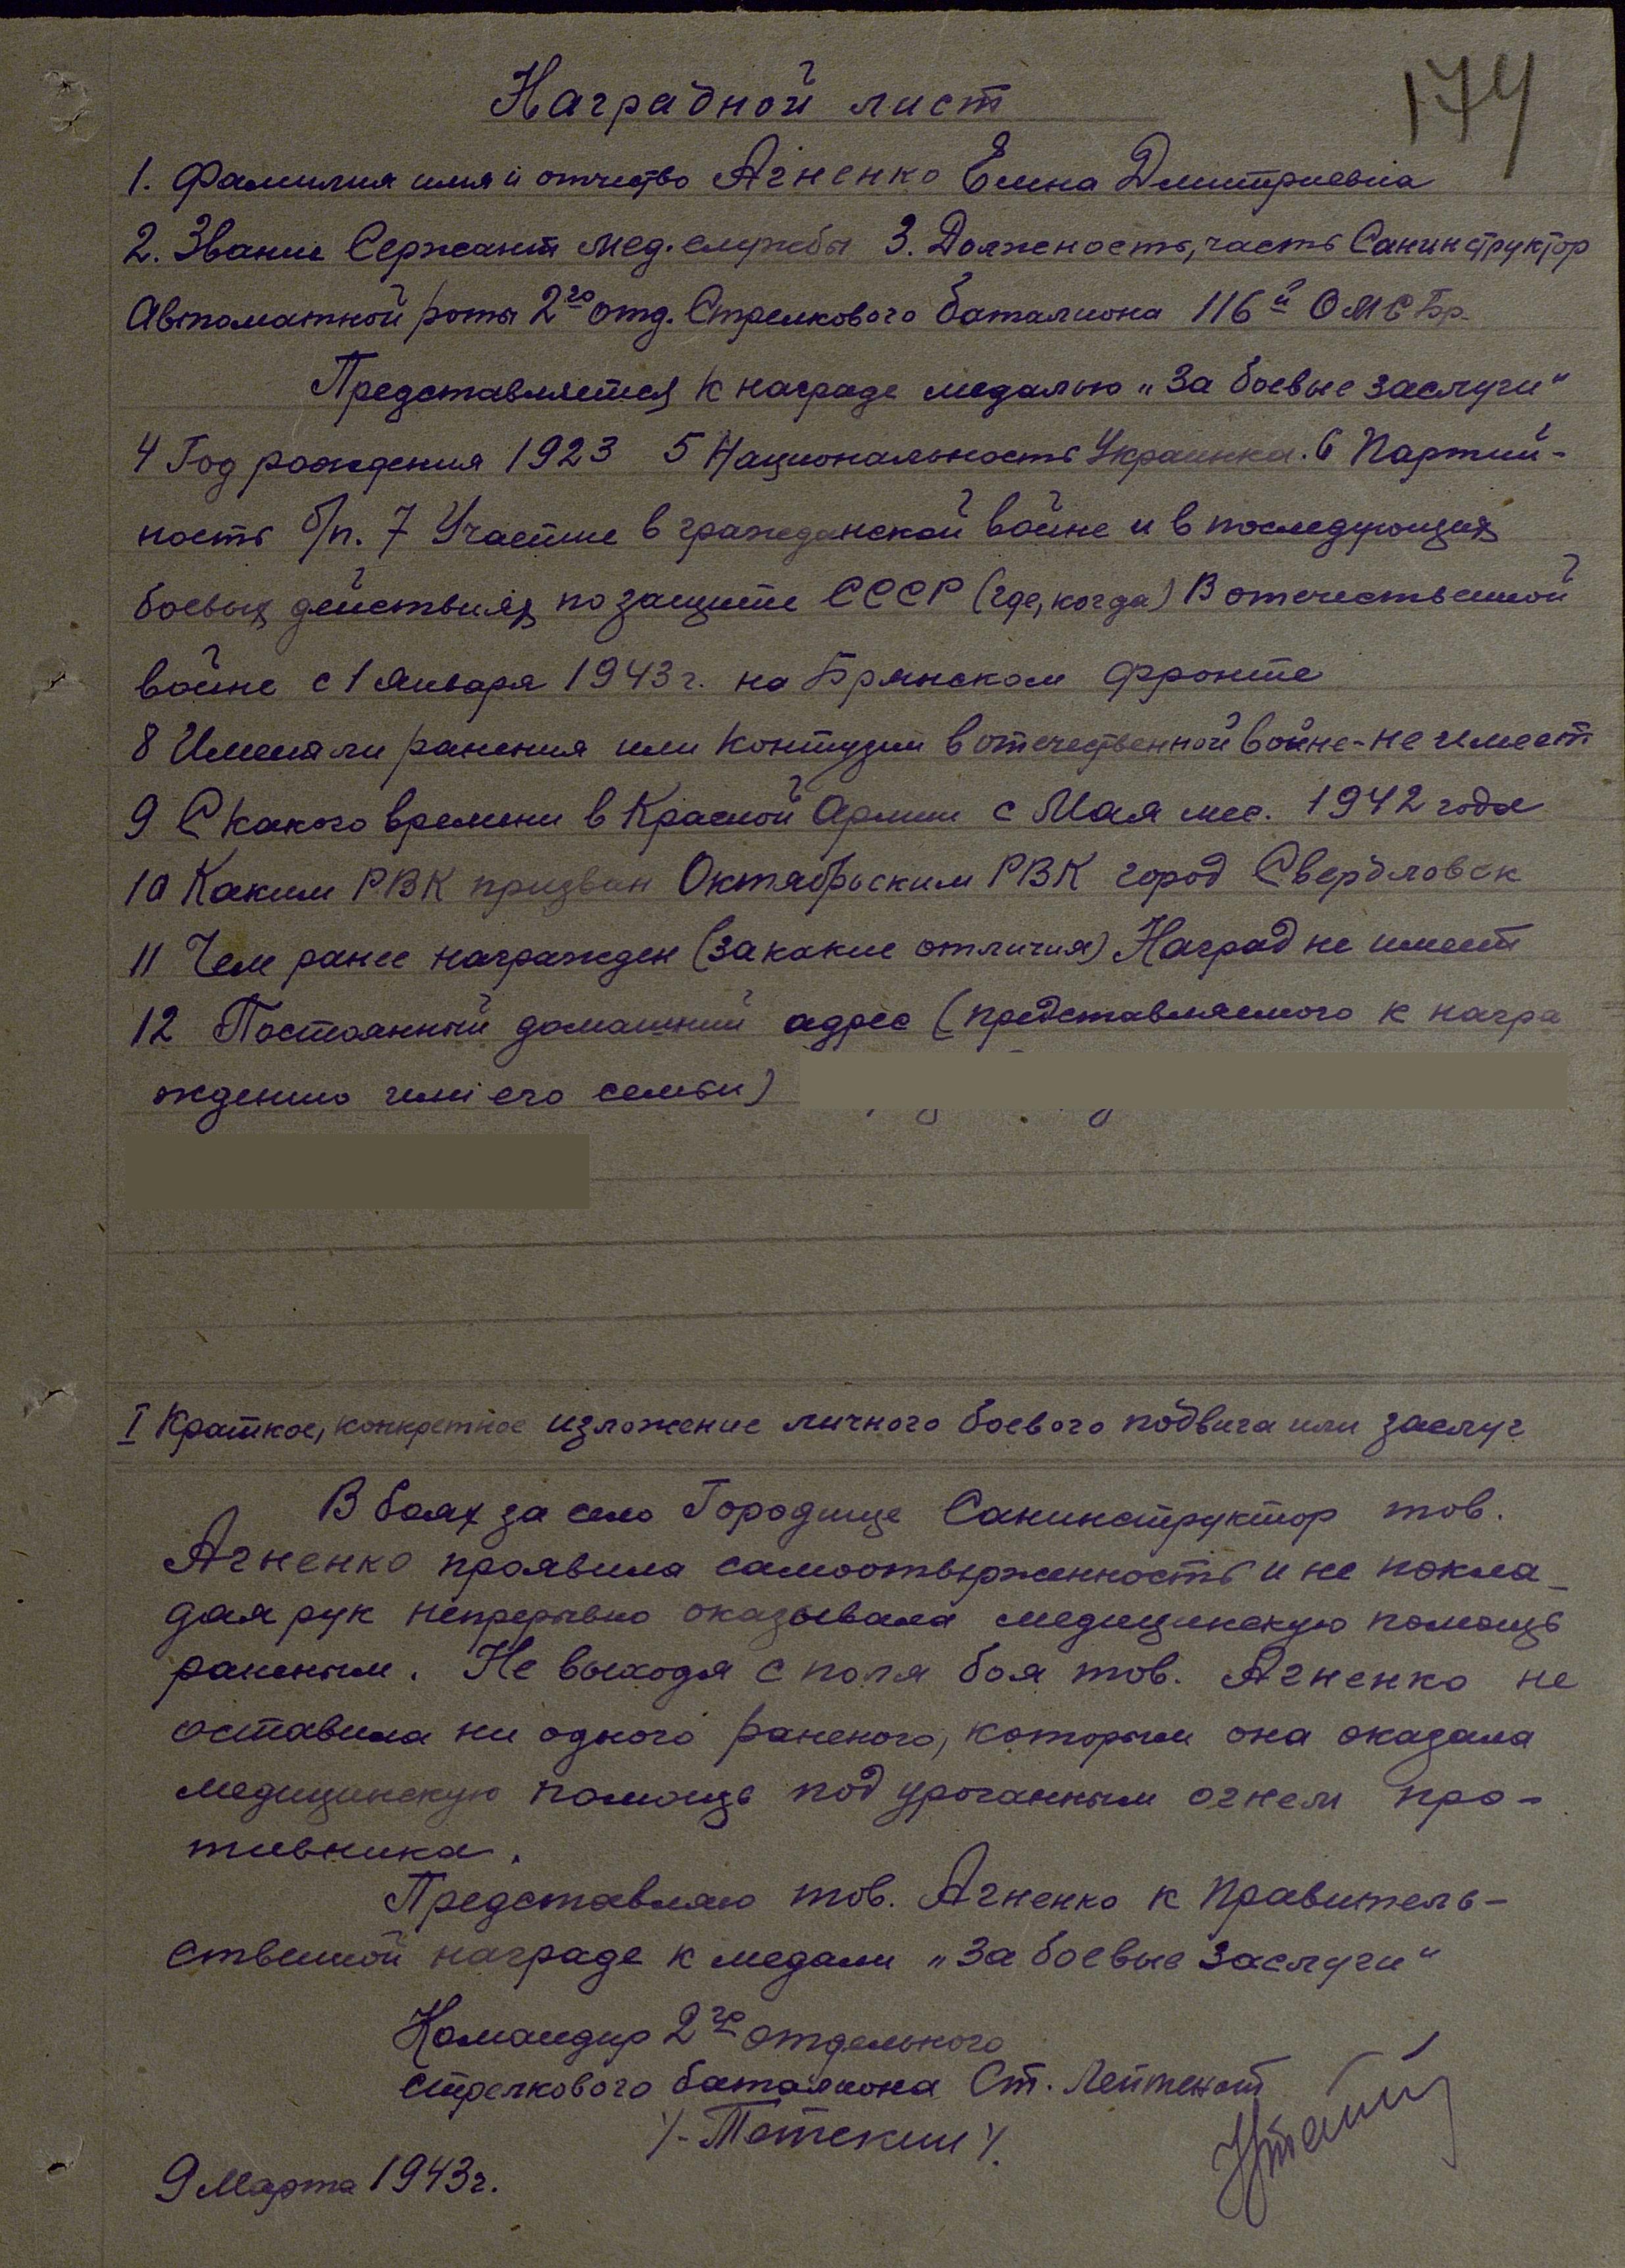 174
Наградной лист
1. Фамилия имя и отчество Агненко Елена Дмитриевна
2. Звание Сержант мед. службы 3. Должность, часть Санинструктор
Автоматной роты 2го отд. Стрелкового батальона 116й ОМСБр.
Представляется к награде медалью „За боевые заслуги"
4 Год рождения 1923 5 Национальность Украинка. 6 Партий-
ность б/п. 7 Участие в гражданской войне и в последующих
боевых действиях по защите СССР (где, когда) В отечественной
войне с 1 января 1943 г. на Брянском фронте
8 Имеет ли ранения или контузии в отечественной войне - не имеет
9 С какого времени в Красной Армии с Мая мес. 1942 года
10 Каким РВК призван Октябрьским РВК город Свердловск
11 Чем ранее награжден (за какие отличия) Наград не имеет
12 Постоянный домашний адрес (представляемого к награ
ждению или его семьи)
I Краткое, конкретное изложение личного боевого подвига или заслуг
В боях за село Городище Санинструктор тов.
Агненко проявила самоотверженность и не покла-
дая рук непрерывно оказывала медицинскую помощь
раненым. Не выходя с поля боя тов. Агненко не
оставила ни одного раненого, которым она оказала
медицинскую помощь под ураганным огнем про-
тивника.
Представляю тов. Агненко к Правитель-
ственной награде к медали „За боевые заслуги"
Командир 2го отдельного
стрелкового батальона Ст. Лейтенант
/-Татский/.
9 Марта 1943 г.